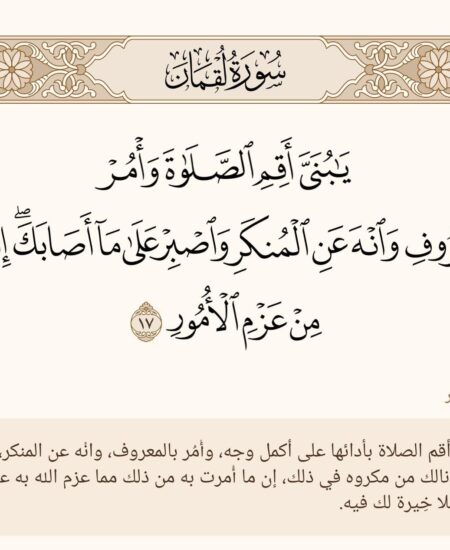 سُورَةُ لُقْمَان
يَٰبُنَىَّ أَقِمِ ٱلصَّلَوٰةَ وَأْمُرْ
وَٱنْهَ عَنِ ٱلْمُنكَرِ وَٱصْبِرْ عَلَىٰ مَآ أَصَابَكَ ۖ
مِنْ عَزْمِ ٱلْأُمُورِ ١٧
أقم الصلاة بأدائها على أكمل وجه، وأمُر بالمعروف، وانْه عن المنكر،
نالك من مكروه في ذلك، إن ما أمرت به من ذلك مما عزم الله به
خِيرة لك فيه.